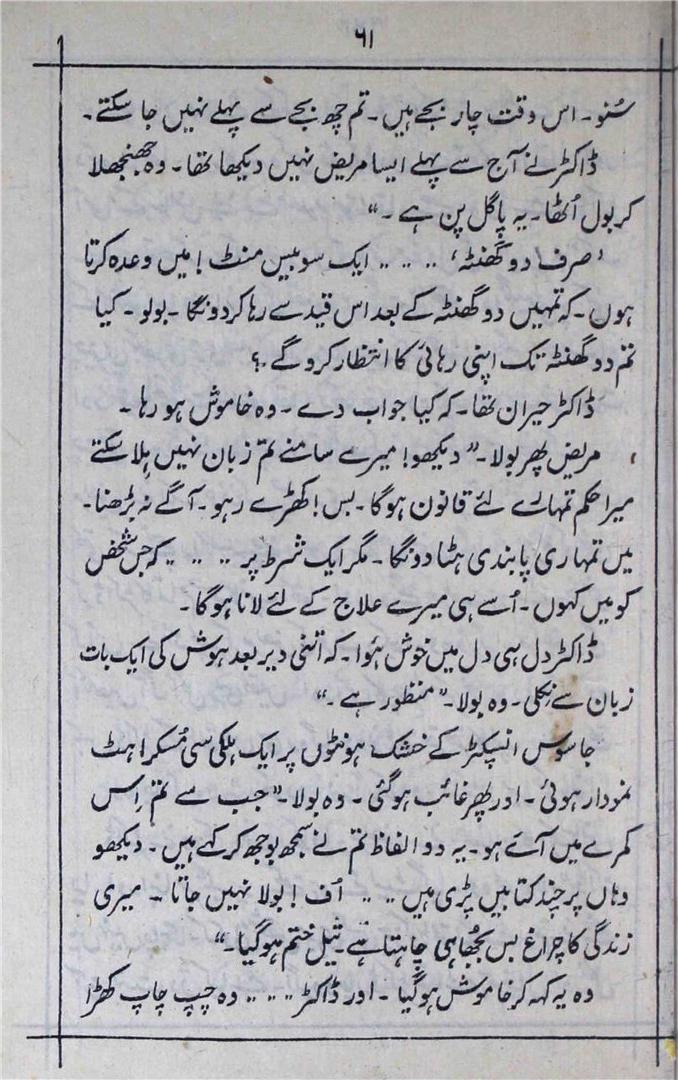 ۶۱
سُنو۔ اس وقت چار بجے ہیں۔ تم چھ بجے سے پہلے نہیں جا سکتے۔
ڈاکٹر نے آج سے پہلے ایسا مریض نہیں دیکھا تھا۔ وہ جھنجھلا
کر بول اُٹھا۔ یہ پاگل پن ہے۔“
’صرف دو گھنٹہ‘ ۔۔۔۔ ایک سو بیس منٹ! میں وعدہ کرتا
ہوں۔ کہ تمہیں دو گھنٹہ کے بعد اس قید سے رہا کر دونگا۔ بولو۔ کیا
تم دو گھنٹہ تک اپنی رہائی کا انتظار کرو گے۔؟
ڈاکٹر حیران تھا۔ کہ کیا جواب دے۔ وہ خاموش ہو رہا۔
مریض پھر بولا۔ ”دیکھو! میرے سامنے تم زبان نہیں ہِلا سکتے
میرا حکم تمہارے لئے قانون ہوگا۔ بس! کھڑے رہو۔ آگے نہ بڑھنا۔
میں تمہاری پابندی ہٹا دونگا۔ مگر ایک شرط پر ۔۔۔۔ کہ جس شخص
کو میں کہوں۔ اُسے ہی میرے علاج کے لئے لانا ہوگا۔
ڈاکٹر دل ہی دل میں خوش ہوُا۔ کہ اتنی دیر بعد ہوش کی ایک بات
زبان سے نِکلی۔ وہ بولا۔ ”منظور ہے۔“
جاسوس انسپکٹر کے خشک ہونٹوں پر ایک ہلکی سی مُسکراہٹ
نمودار ہوئی۔ اور پھر غائب ہوگئی۔ وہ بولا۔ ”جب سے تم اِس
کمرے میں آئے ہو۔ یہ دو الفاظ تم نے سمجھ بوجھ کر کہے ہیں۔ دیکھو
وہاں پر چند کتابیں پڑی ہیں ۔۔۔ اُف! بولا نہیں جاتا۔ میری
زندگی کا چراغ بس بُجھا ہی چاہتا ہے۔ تیل ختم ہو گیا۔“
وہ یہ کہہ کر خاموش ہو گیا۔ اور ڈاکٹر ۔۔۔۔ وہ چپ چاپ کھڑا